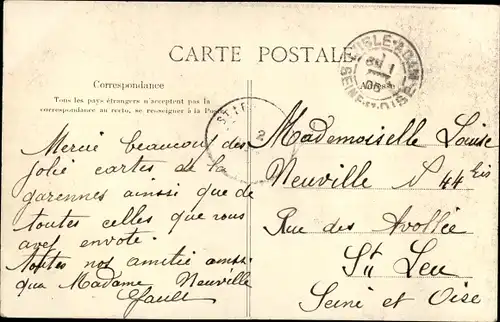 CARTE POSTALE
Correspondance
Tous les pays étrangers n'acceptent pas la
correspondance au recto, se renseigner à la Poste
L'ISLE-ADAM
SEINE-ET-OISE
ST LEU
2
Mercie beaucoup des
jolie cartes de la
garennes ainsi que de
toutes celles que vous
avet envote.
toutes nos amitié aussi
qua Madame Neuville
Mademoiselle Louise
Neuville N 44 bis
Rue des
St Leu
Seine et Oise